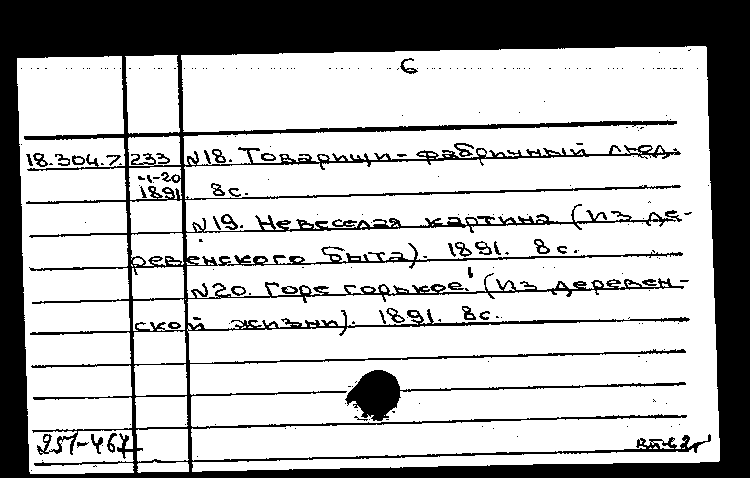 6
18.304.7.233 N18. Товарищи-фабричный люд.
1-20
1891. 8с.
N19. Невеселая картина (из де-
ревенского быта). 1891. 8с.
N20. Горе горькое! (Из деревен-
ской жизни). 1891. 8с.
251-467